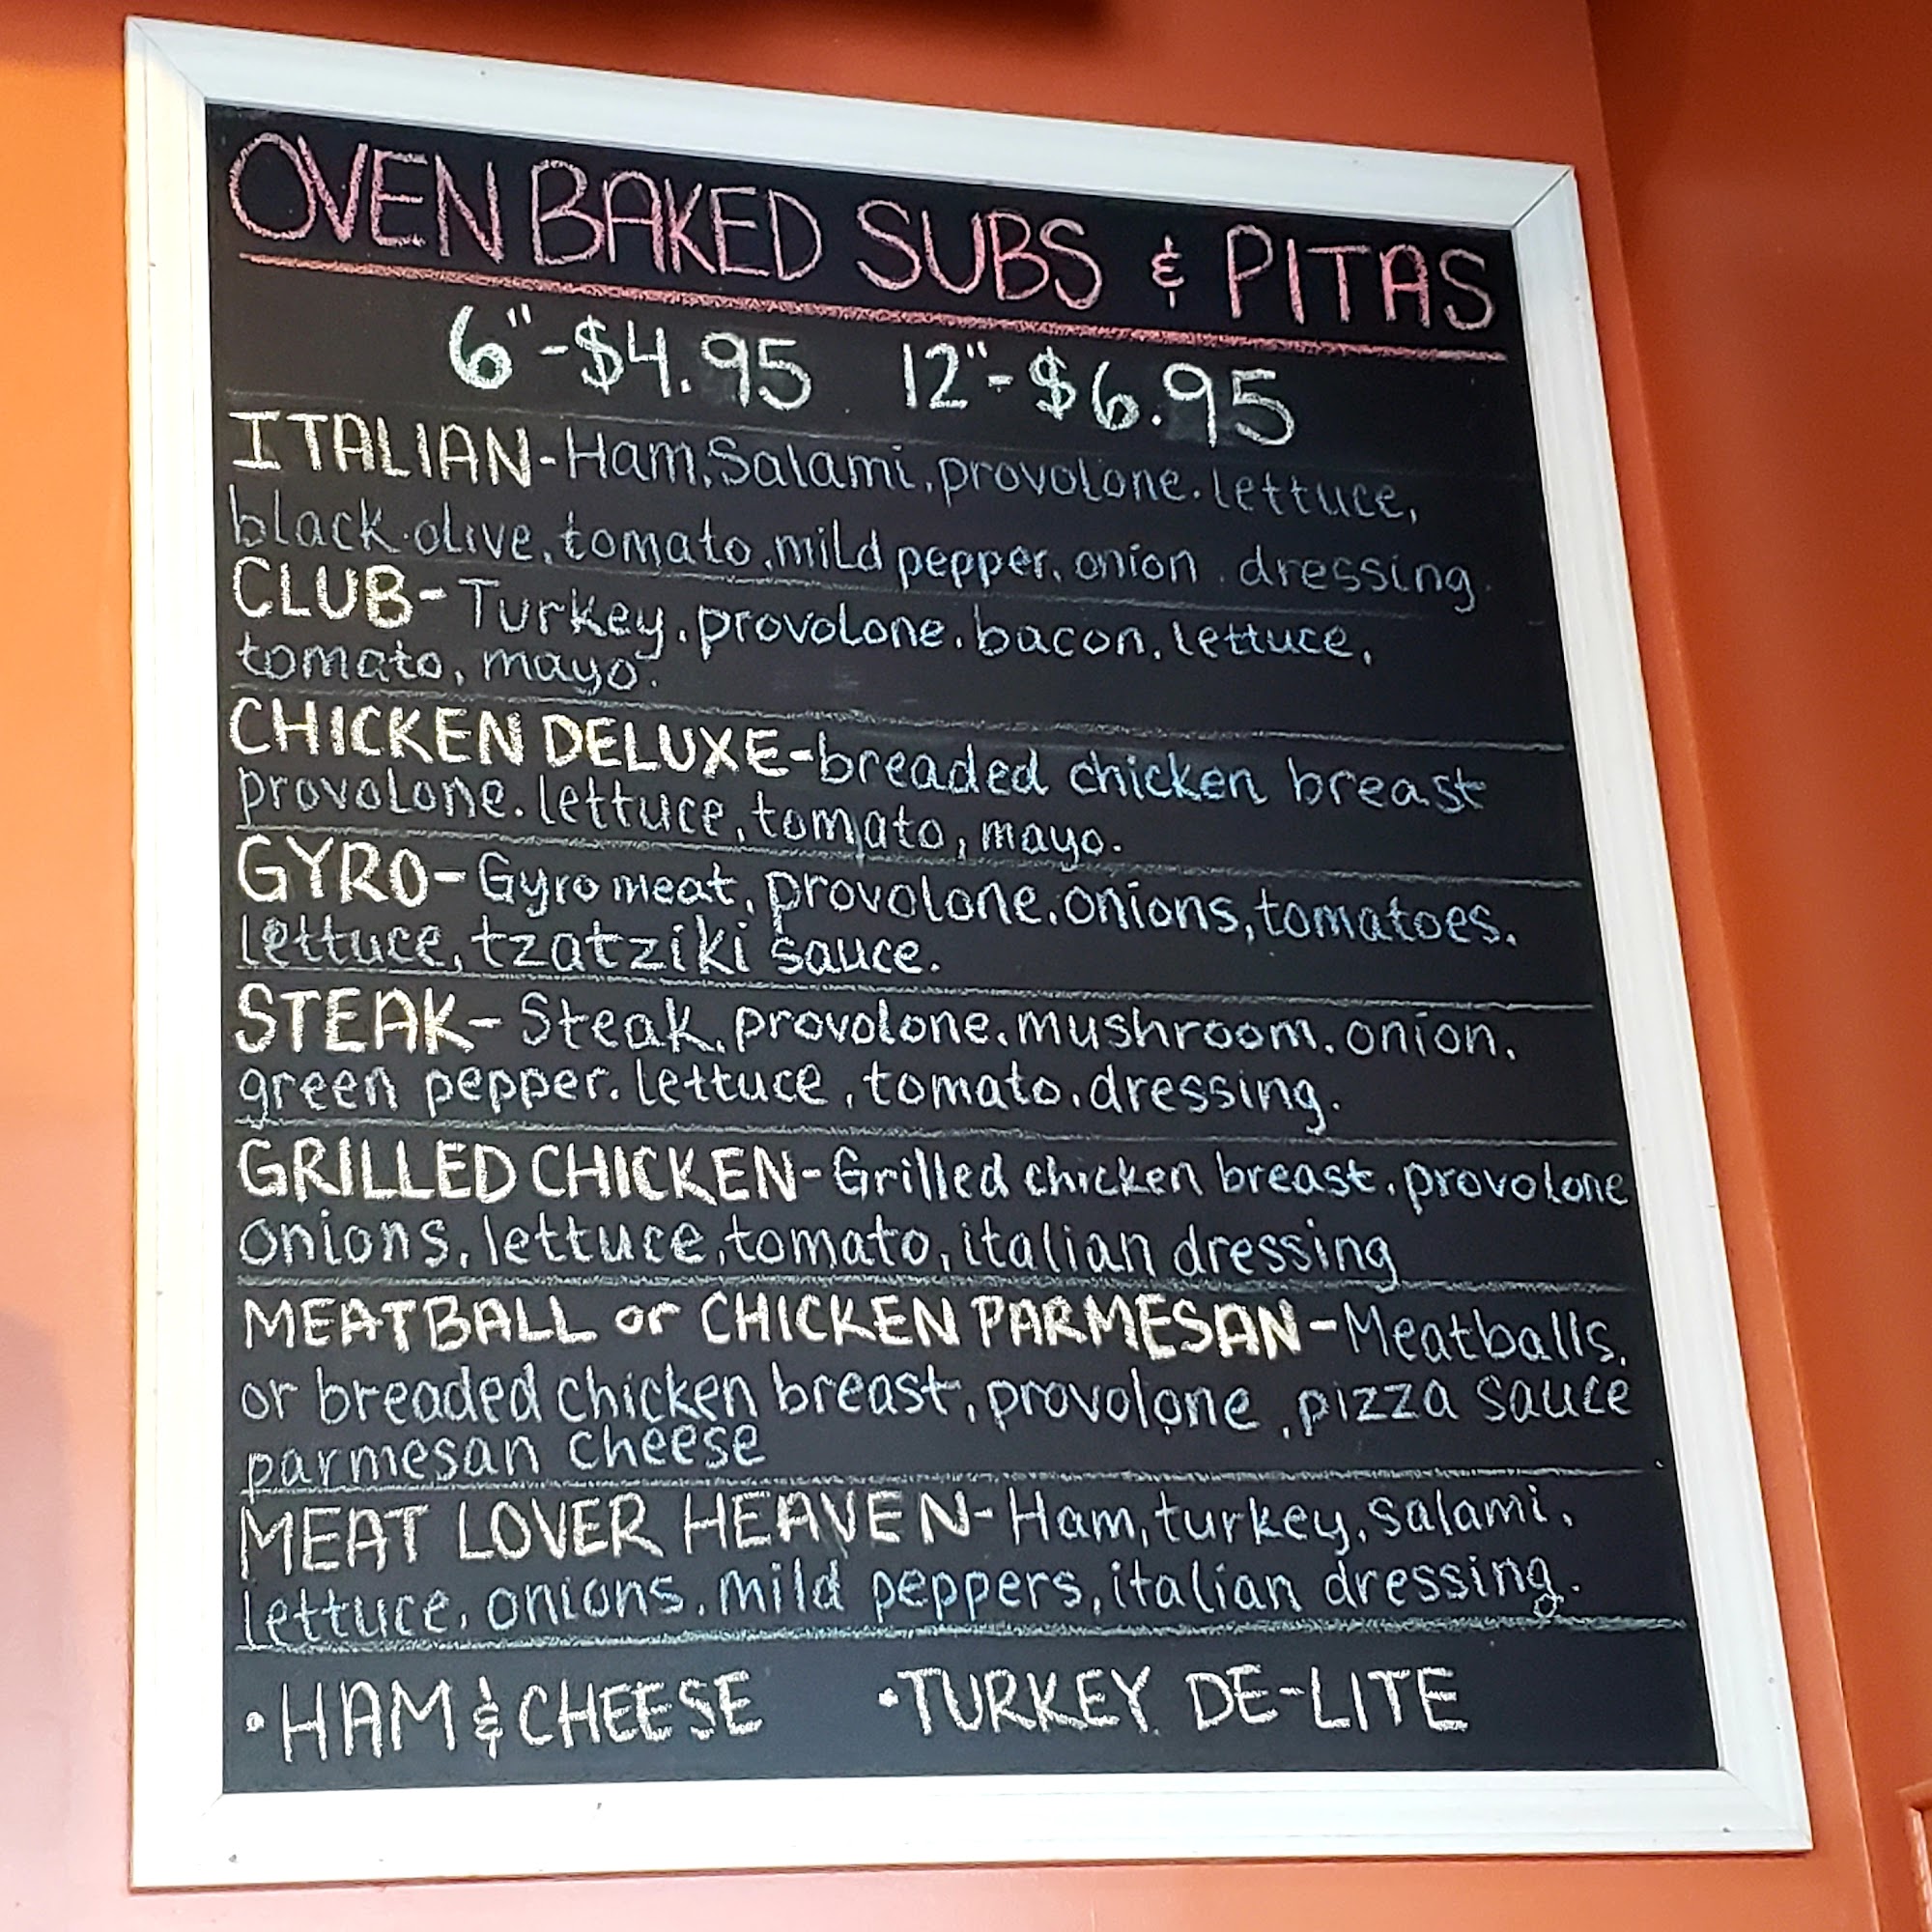 OVEN BAKED SUBS & PITAS
6"-$4.95 12"-$6.95
ITALIAN-Ham, Salami, provolone. lettuce,
black olive, tomato, mild pepper, onion. dressing.
CLUB-Turkey, provolone, bacon, lettuce,
tomato, mayo.
CHICKEN DELUXE-breaded chicken breast
provolone. lettuce, tomato, mayo.
GYRO-Gyro meat, provolone, onions, tomatoes.
lettuce, tzatziki sauce.
STEAK-Steak, provolone, mushroom, onion,
green pepper. lettuce, tomato, dressing.
GRILLED CHICKEN-Grilled chicken breast, provolone
onions, lettuce, tomato, italian dressing
MEATBALL or CHICKEN PARMESAN-Meatballs,
or breaded chicken breast, provolone, pizza sauce
parmesan cheese
MEAT LOVER HEAVEN-Ham, turkey, salami,
lettuce, onions, mild peppers, italian dressing.
•HAM & CHEESE •TURKEY DE-LITE